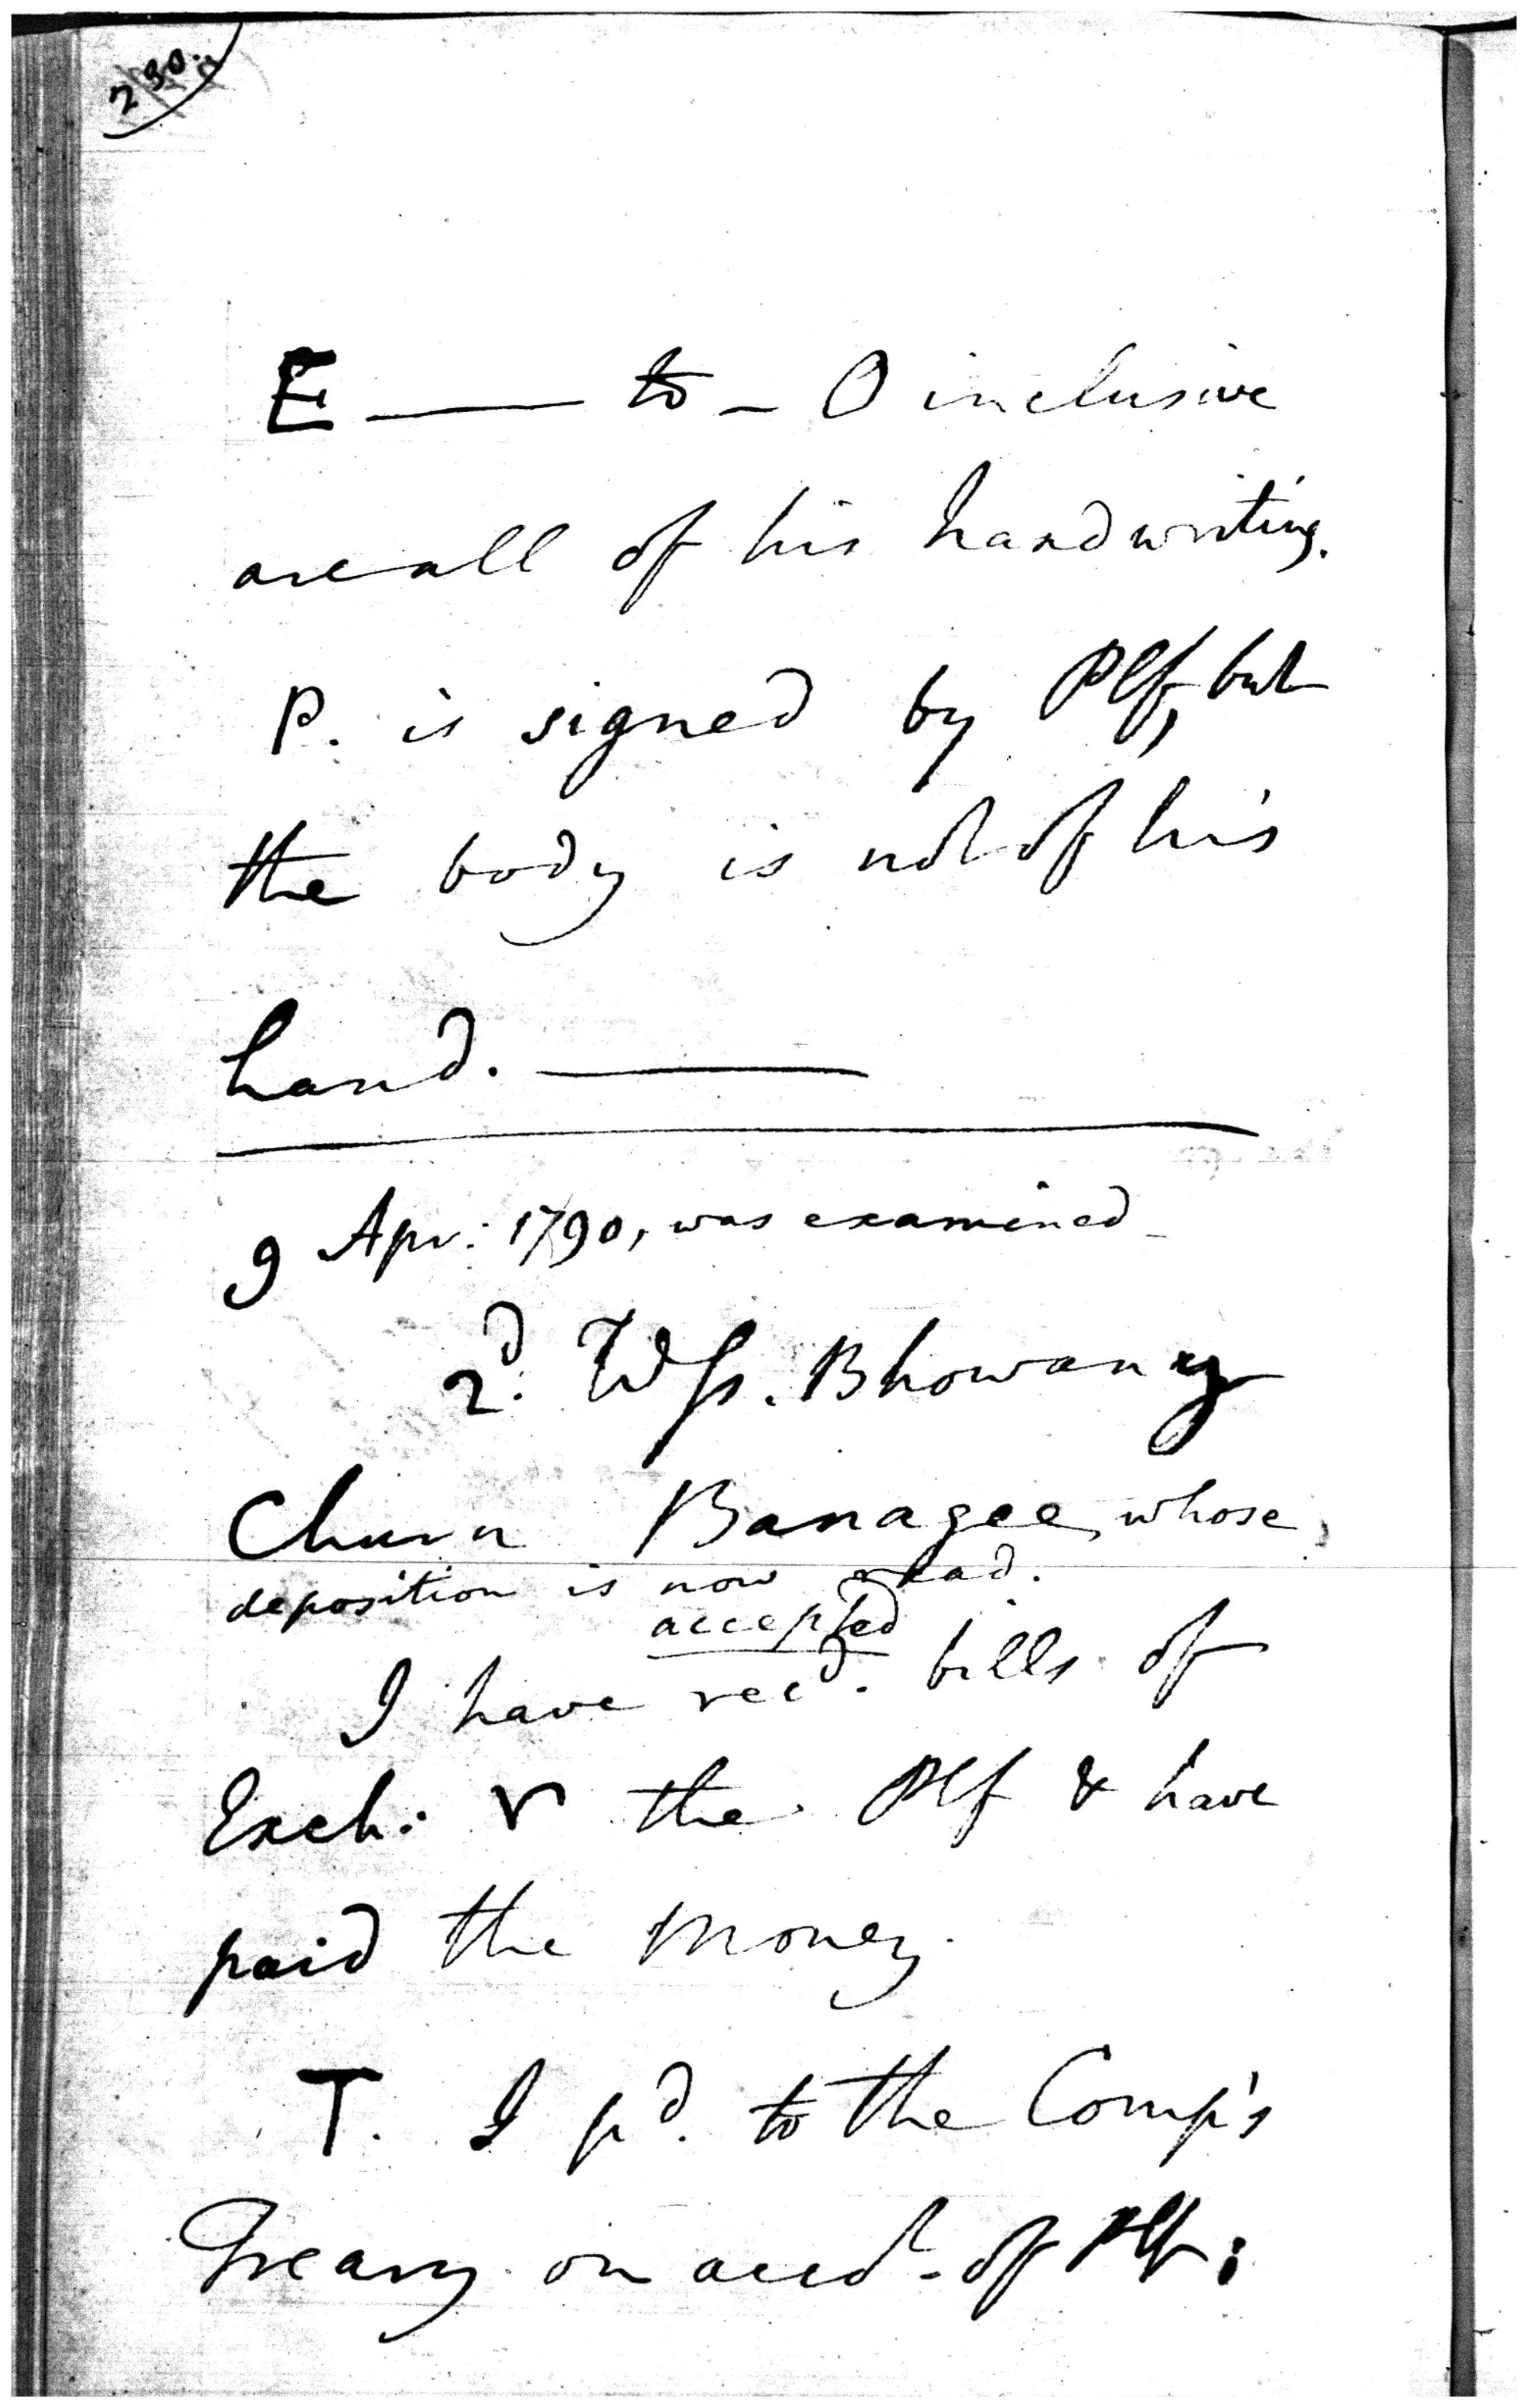 230.
E —— to – O inclusive
are all of his handwriting.
P. is signed by Plf, but
the body is not of his
hand. ——
9 Apr: 1790, was examined
2d. Wss. Bhowany
Churn Banagee, whose
deposition is now read.
accepted
I have recd. bills of
Exch: v the Plf & have
paid the money.
T. I pd. to the Comp's
Treary on acct. of Plf: